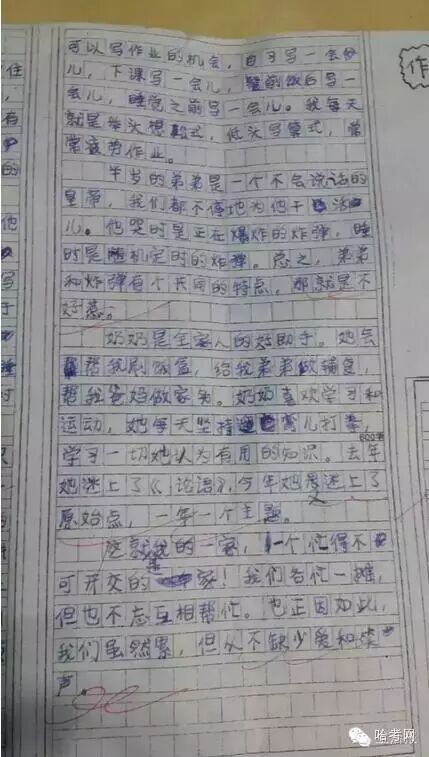 可以写作业的机会,自习写一会
儿,下课写一会儿,饭后写一
会儿,睡觉之前写一会儿。我每天
就是举头想私式,低头写算式,常
常疲劳作业。
半岁的弟弟是一个不会说话的
皇帝,我们都不停地为他干活
儿。他哭时是正在爆炸的炸弹,睡
时是随机定时的炸弹。总之,弟弟
和炸弹有个共同的特点,那就是不
好惹。
奶奶是全家人的好助手。她会
帮我刷饭盒,给我弟弟做辅食,
帮我爸妈做家务。奶奶喜欢学习和
运动,她每天坚持弯儿打拳,
600字
学习一切她认为有用的知识。去年
她迷上了《论语》,今年她又迷上了
原始点,一年一个主题。
这就是我的一家,一个忙得不
可开交的家!我们各忙一摊,
但也不忘互相帮忙。也正因如此,
我们虽然累,但从不缺少爱和笑
声。
作
住
有
的
他
写
哈考网